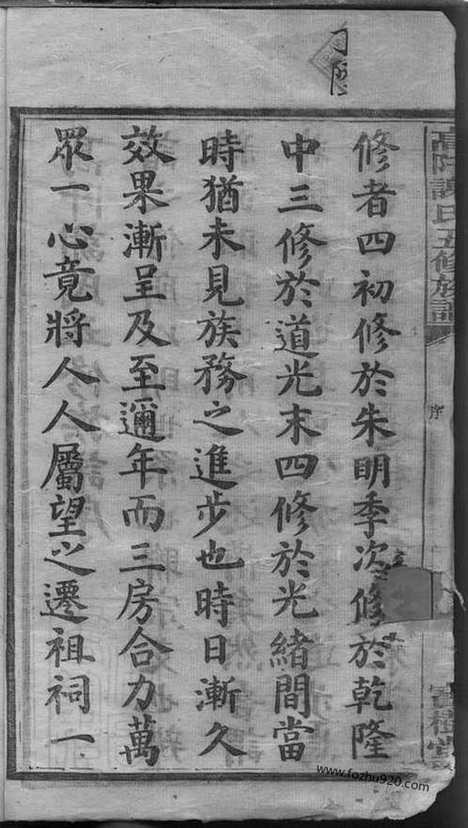 修者四初修於朱明季次修於乾隆
中三修於道光末四修於光緒間當
時猶未見族務之進步也時日漸久
效果漸呈及至邇年而三房合力萬
眾一心竟將人人屬望之遷祖祠一
氏五修族譜
序
www.fozhu920.com